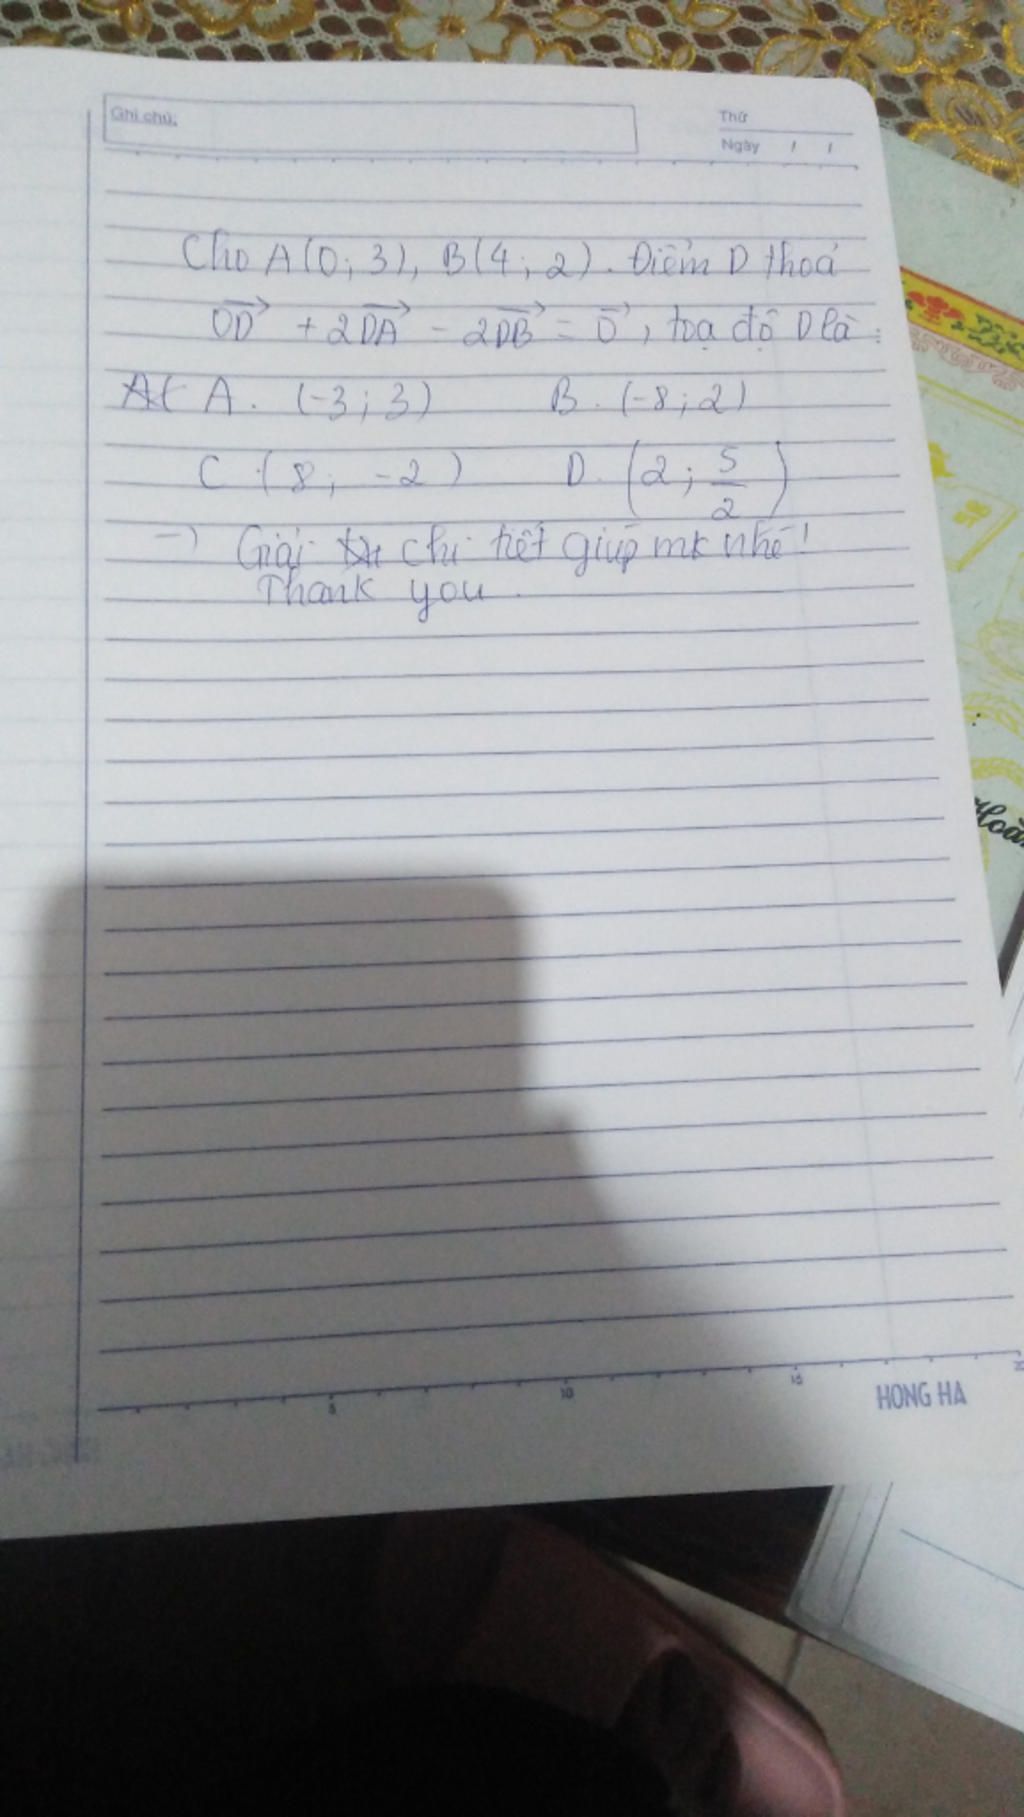 Ghi chú:
Thứ
Ngày / /
Cho A(0; 3), B(4; 2). Điểm D thoả
OD + 2DA - 2DB = 0, toạ độ D là:
A. (-3; 3) B. (-8; 2)
C. (8; -2) D. (2; 5/2)
-) Giải chi tiết giúp mk nhé!
Thank you.
5 10 15 20
HONG HA
Hoà